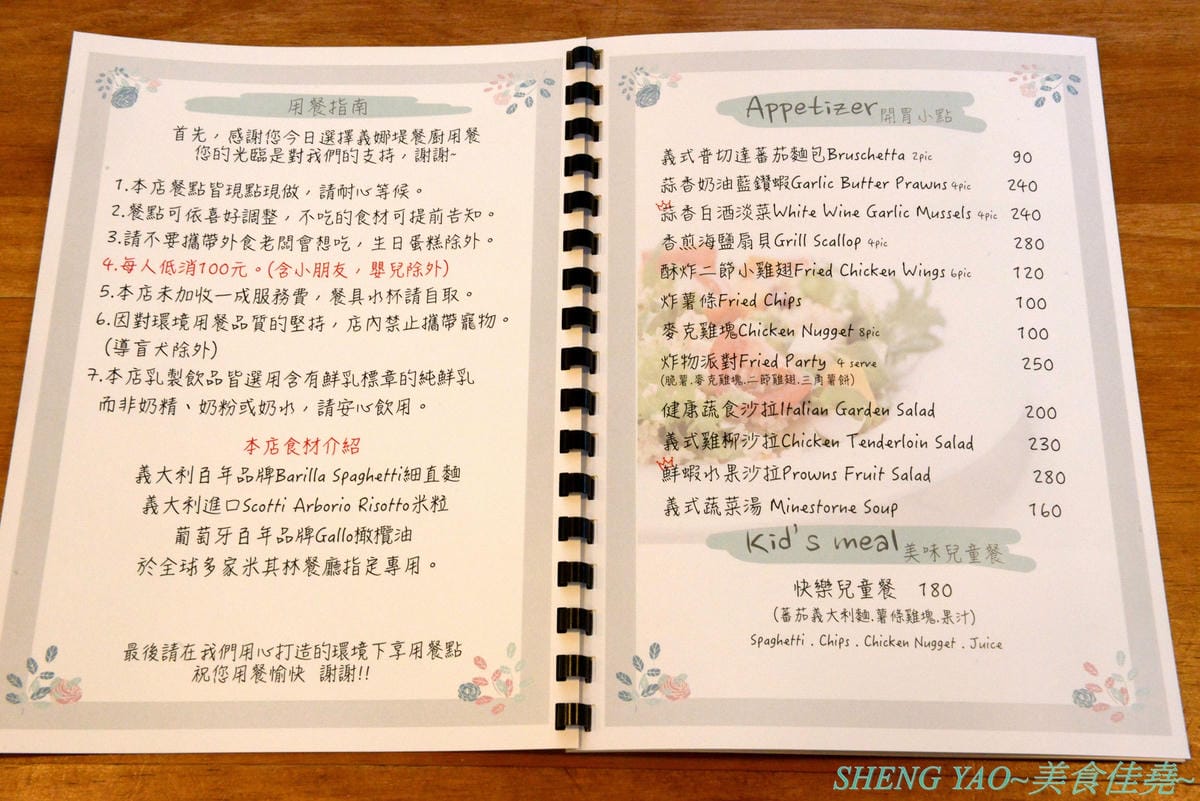 用餐指南
首先，感謝您今日選擇義娜堤餐廚用餐
您的光臨是對我們的支持，謝謝~
1.本店餐點皆現點現做，請耐心等候。
2.餐點可依喜好調整，不吃的食材可提前告知。
3.請不要攜帶外食老闆會想吃，生日蛋糕除外。
4.每人低消100元。(含小朋友，嬰兒除外)
5.本店未加收一成服務費，餐具水杯請自取。
6.因對環境用餐品質的堅持，店內禁止攜帶寵物。
(導盲犬除外)
7.本店乳製飲品皆選用含有鮮乳標章的純鮮乳
而非奶精、奶粉或奶水，請安心飲用。
本店食材介紹
義大利百年品牌Barilla Spaghetti細直麵
義大利進口Scotti Arborio Risotto米粒
葡萄牙百年品牌Gallo橄欖油
於全球多家米其林餐廳指定專用。
最後請在我們用心打造的環境下享用餐點
祝您用餐愉快 謝謝!!
Appetizer開胃小點
義式普切達蕃茄麵包Bruschetta 2pic 90
蒜香奶油藍鑽蝦Garlic Butter Prawns 4pic 240
蒜香白酒淡菜White Wine Garlic Mussels 4pic 240
香煎海鹽扇貝Grill Scallop 4pic 280
酥炸二節小雞翅Fried Chicken Wings 6pic 120
炸薯條Fried Chips 100
麥克雞塊Chicken Nugget 8pic 100
炸物派對Fried Party 4 serve 250
(脆薯.麥克雞塊.二節雞翅.三角薯餅)
健康蔬食沙拉Italian Garden Salad 200
義式雞柳沙拉Chicken Tenderloin Salad 230
鮮蝦水果沙拉Prowns Fruit Salad 280
義式蔬菜湯 Minestorne Soup 160
Kid's meal美味兒童餐
快樂兒童餐 180
(蕃茄義大利麵.薯條雞塊.果汁)
Spaghetti . Chips . Chicken Nugget . Juice
SHENG YAO~美食佳堯~